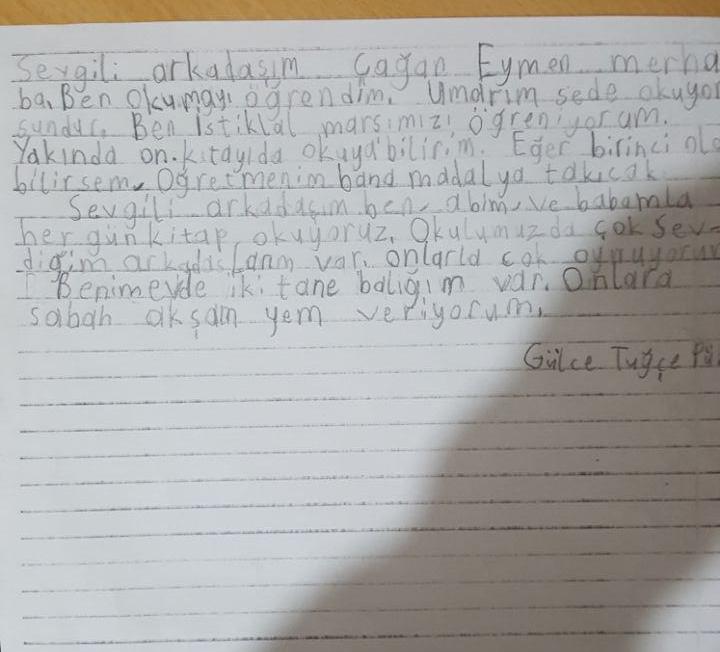 Sevgili arkadaşım Çağan Eymen merha
ba. Ben okumayı öğrendim. Umarım sede okuyor
sundur. Ben İstiklal marşımızı öğreniyorum.
Yakında on kıtayıda okuyabilirim. Eğer birinci ola
bilirsem, Öğretmenim bana madalya takıcak
Sevgili arkadaşım ben, abim, ve babamla
her gün kitap okuyoruz. Okulumuzda çok sev-
diğim arkadaşlarım var. onlarla çok oynuyoruz
Benim evde iki tane balığım var. Onlara
sabah akşam yem veriyorum.
Gülce Tuğçe